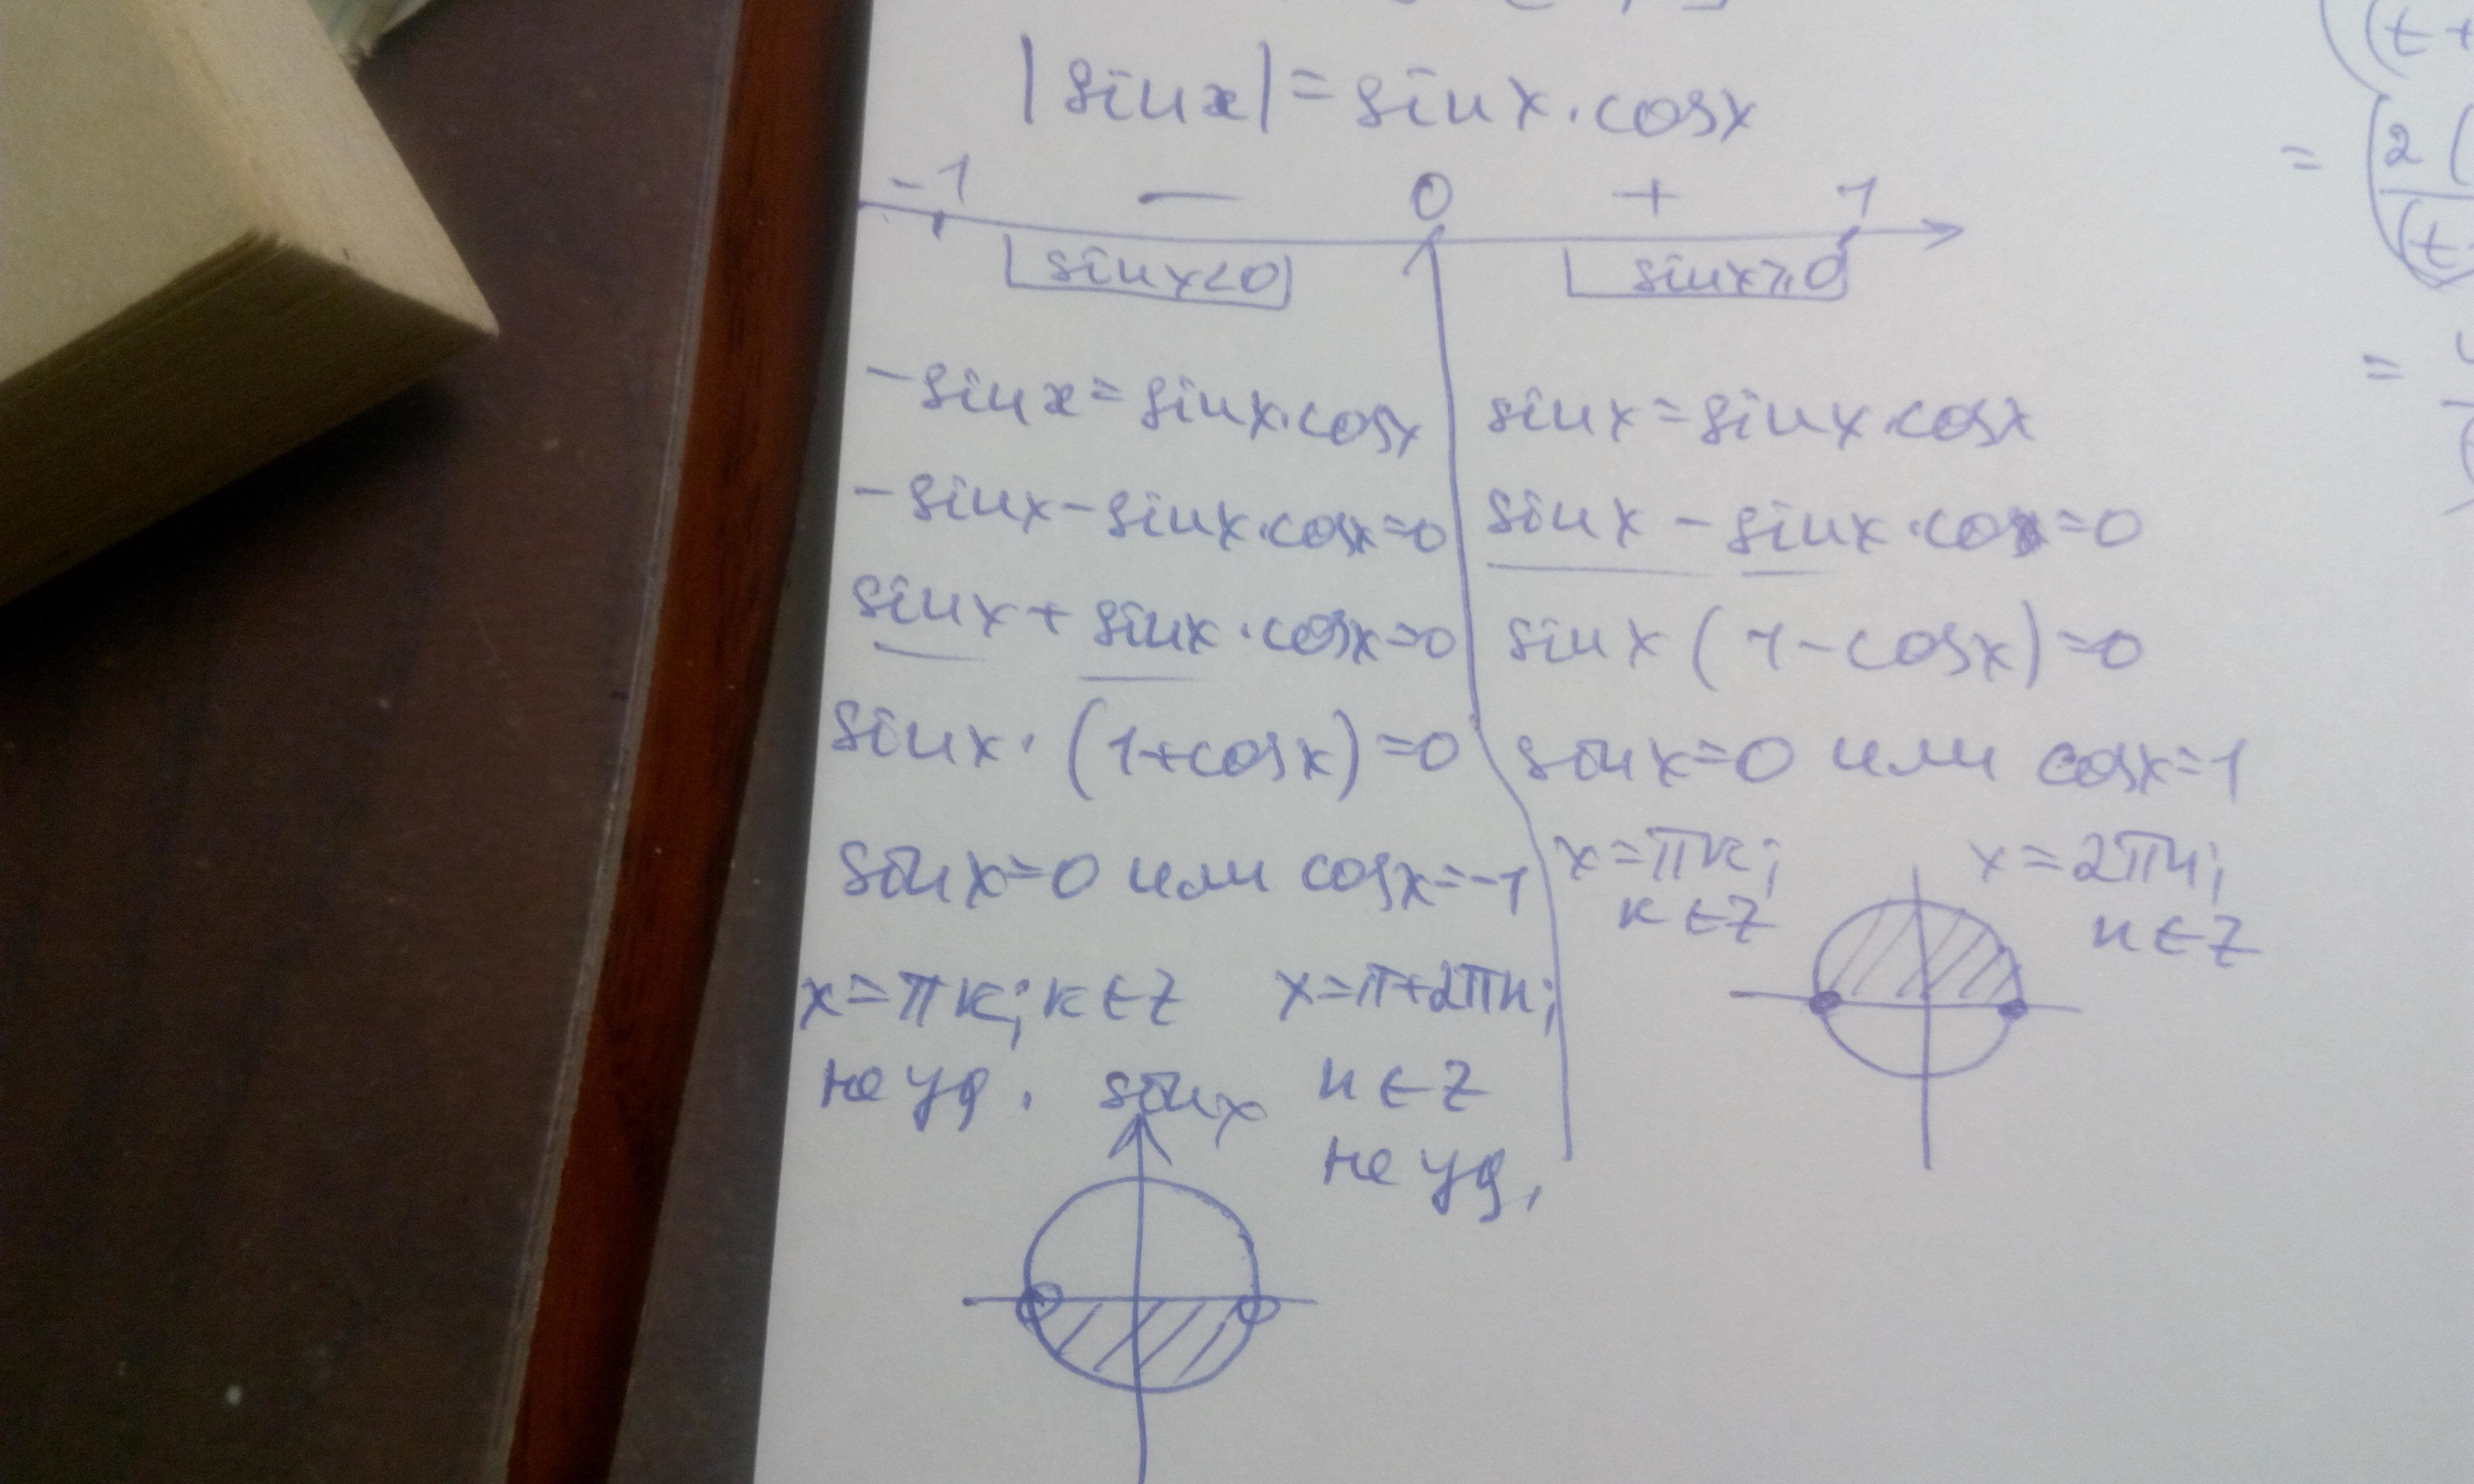 |sin x| = sin x · cos x
-1 — 0 + 1
sin x < 0 sin x ≥ 0
- sin x = sin x · cos x
- sin x - sin x · cos x = 0
sin x + sin x · cos x = 0
sin x · (1 + cos x) = 0
sin x = 0 или cos x = -1
x = πк; к ∈ Z x = π + 2πn;
не уд. sin x n ∈ Z
не уд.
sin x = sin x · cos x
sin x - sin x · cos x = 0
sin x (1 - cos x) = 0
sin x = 0 или cos x = 1
x = πк; x = 2πn;
к ∈ Z n ∈ Z
(t +
= 2 (
(t
=